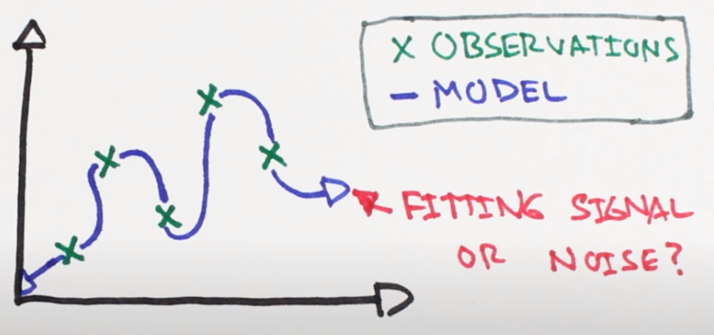 X OBSERVATIONS
– MODEL
FITTING SIGNAL
OR NOISE?